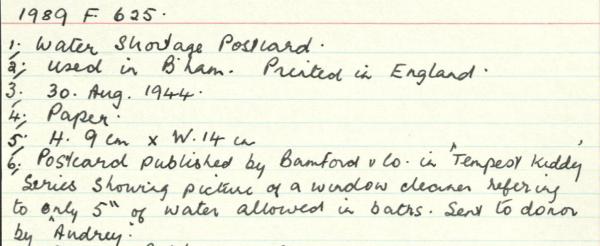 1989 F 625.
1. Water Shortage Postcard.
2. Used in B'ham. Printed in England.
3. 30. Aug. 1944.
4. Paper.
5. H. 9 cm x W. 14 cm
6. Postcard published by Bamford & Co. in "Tempest Kiddy"
Series showing picture of a window cleaner refering
to only 5" of water allowed in baths. Sent to donor
by "Audrey".